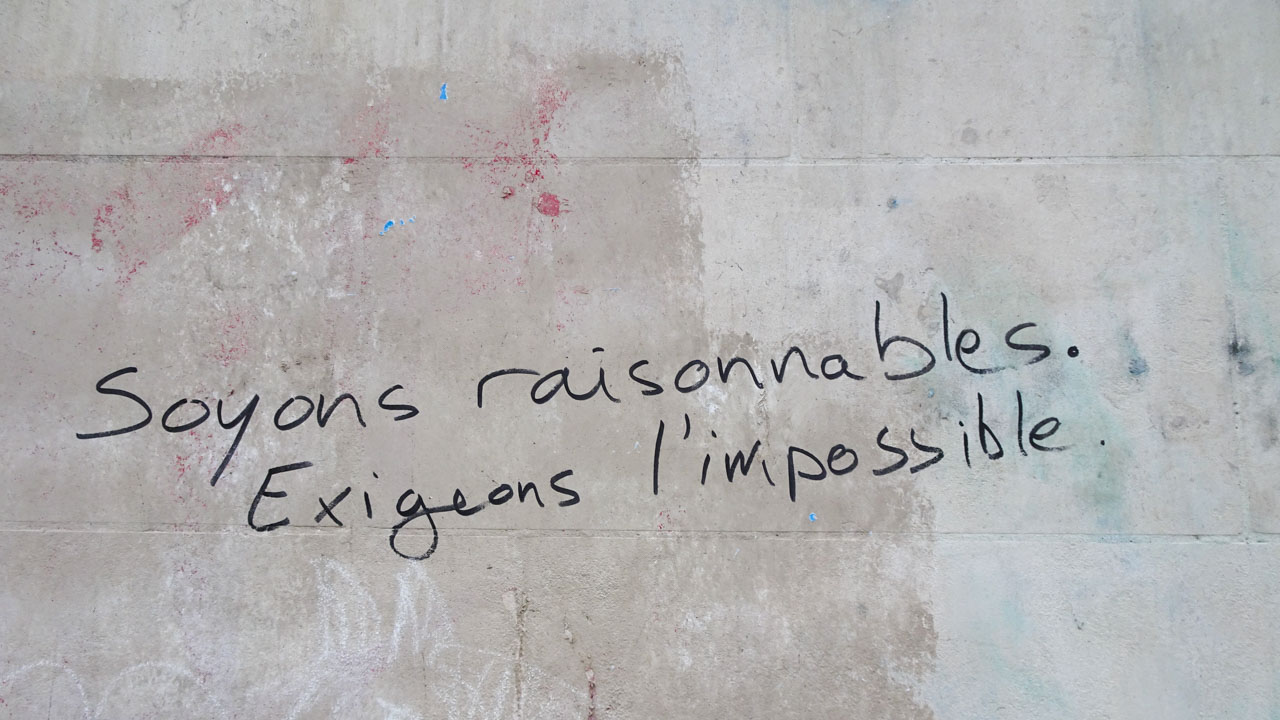 Soyons raisonnables.
Exigeons l'impossible.